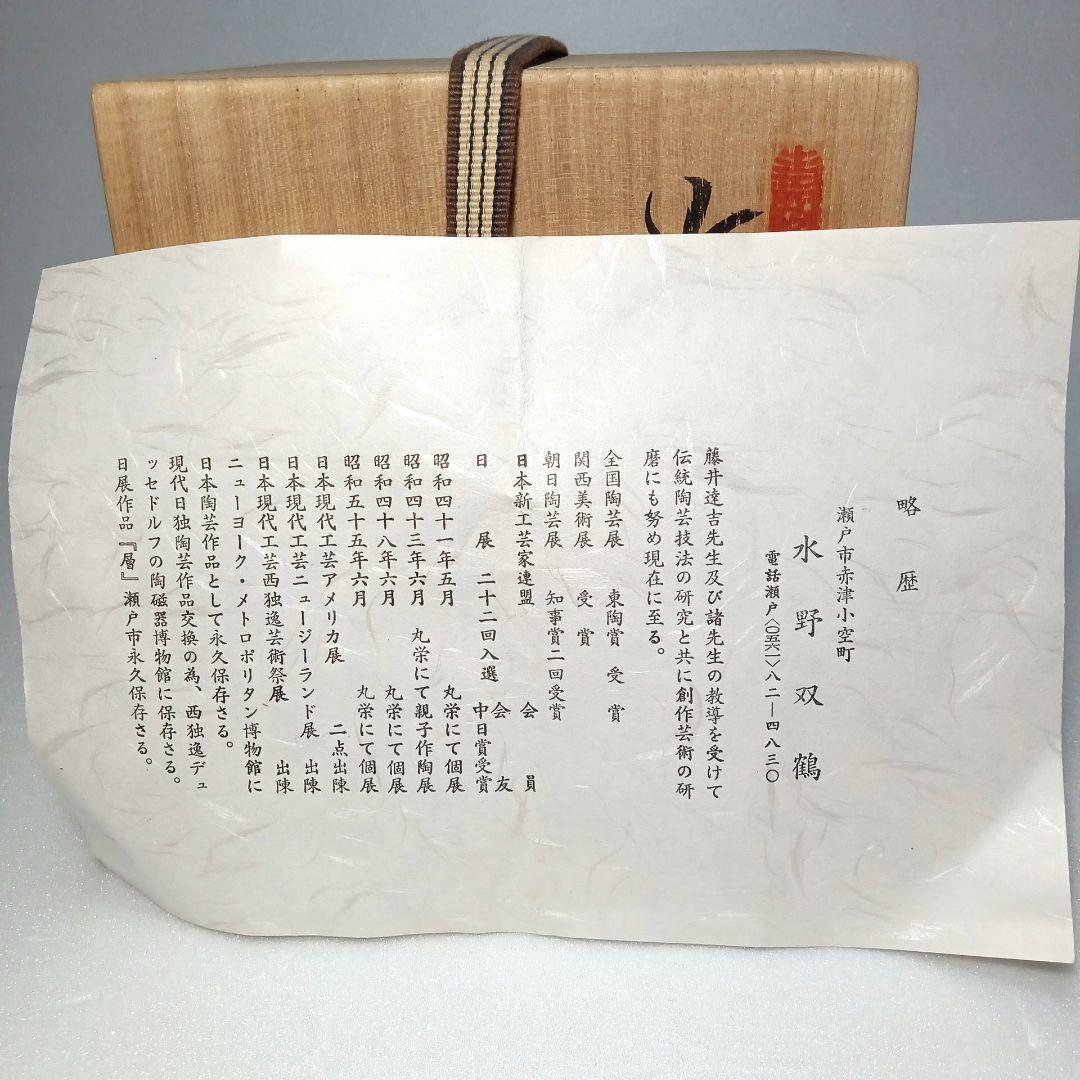 略歴
瀬戸市赤津小空町
水野双鶴
電話瀬戸〈〇五六一〉八二―四八三〇
藤井達吉先生及び諸先生の教導を受けて
伝統陶芸技法の研究と共に創作芸術の研
磨にも努め現在に至る。
全国陶芸展 東陶賞 受賞
関西美術展 受賞
朝日陶芸展 知事賞二回受賞
日本新工芸家連盟 会員
会友
日展 二十二回入選 中日賞受賞
昭和四十一年五月 丸栄にて個展
昭和四十三年六月 丸栄にて親子作陶展
昭和四十八年六月 丸栄にて個展
昭和五十五年六月 丸栄にて個展
日本現代工芸アメリカ展 二点出陳
日本現代工芸ニュージーランド展 出陳
日本現代工芸西独逸芸術祭展 出陳
ニューヨーク・メトロポリタン博物館に
日本陶芸作品として永久保存さる。
現代日独陶芸作品交換の為、西独逸デュ
ッセドルフの陶磁器博物館に保存さる。
日展作品『層』瀬戸市永久保存さる。